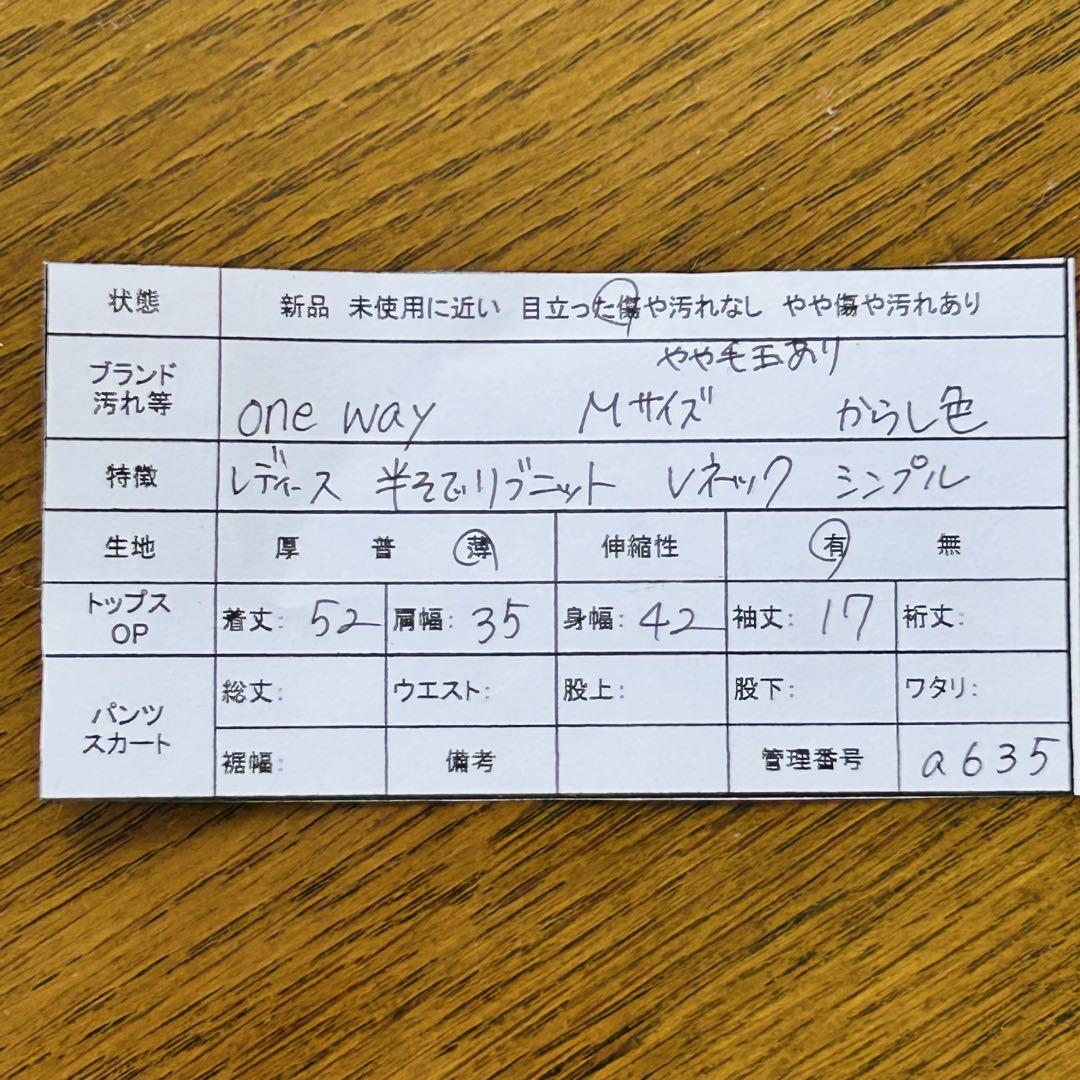 状態 新品 未使用に近い 目立った傷や汚れなし やや傷や汚れあり
やや毛玉あり
ブランド
汚れ等 one way Mサイズ からし色
特徴 レディース 半そでリブニット Vネック シンプル
生地 厚 普 薄 伸縮性 有 無
トップス
OP 着丈: 52 肩幅: 35 身幅: 42 袖丈: 17 裄丈:
総丈: ウエスト: 股上: 股下: ワタリ:
パンツ
スカート
裾幅: 備考 管理番号 a635